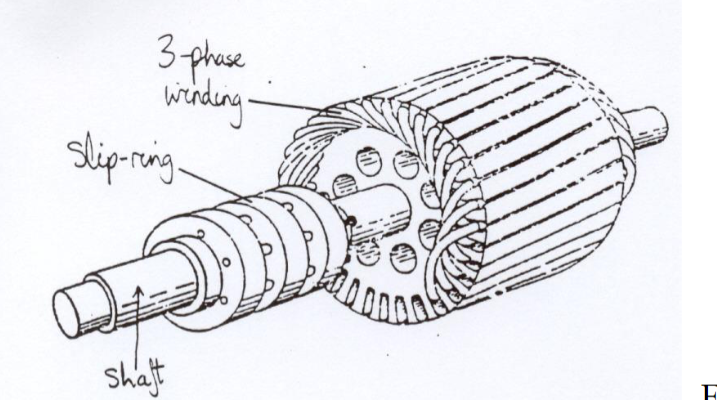 3-phase
winding
Slip-ring
shaft